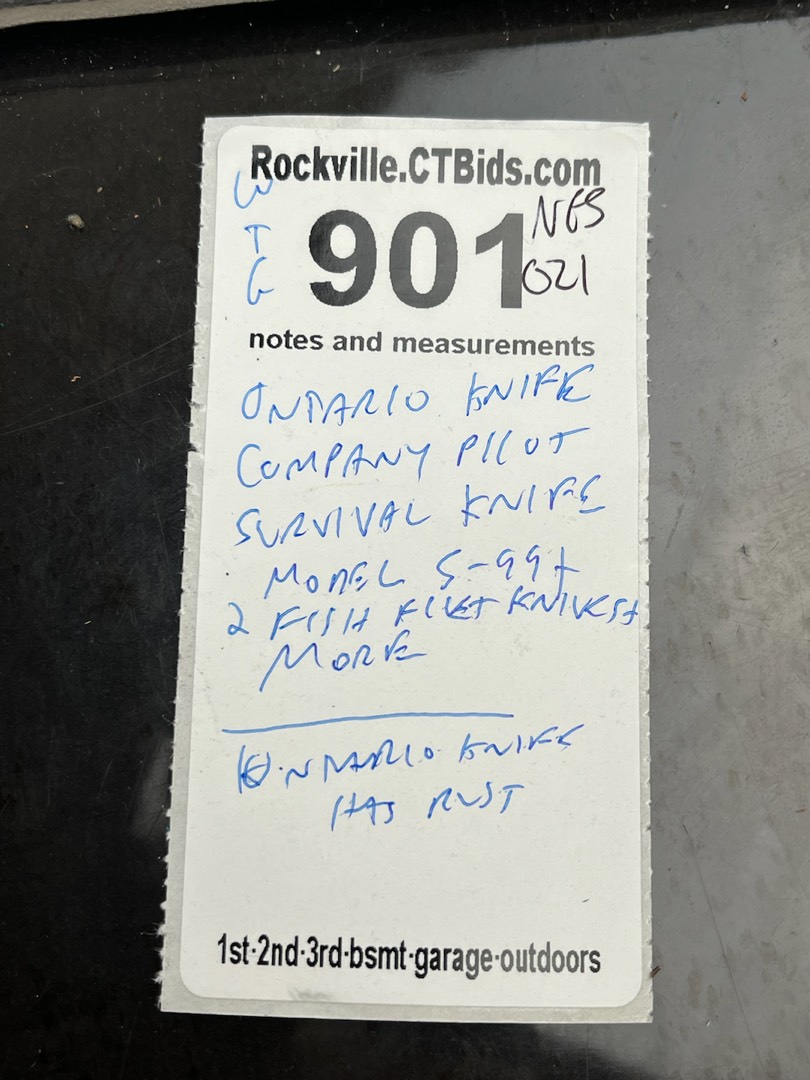 Rockville.CTBids.com
W
T
G
901
NES
021
notes and measurements
ONTARIO KNIFE
COMPANY PILOT
SURVIVAL KNIFE
MODEL 5-99+
2 FISH FILET KNIVES+
MORE
ONTARIO KNIFE
HAS RUST
1st·2nd·3rd·bsmt·garage·outdoors